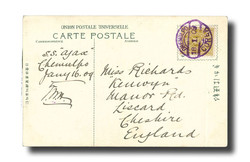 UNION POSTALE UNIVERSELLE
CARTE POSTALE
S.S. "Ajax"
Chemulpo
Jany 16. 09
Miss Richards
"Renwyn"
Manor Rd.
Liscard
Cheshire
England